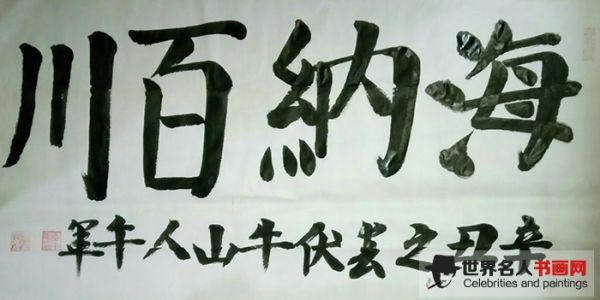 海納百川
辛丑之春伏牛山人牛軍
世界名人书画网
Celebrities and paintings